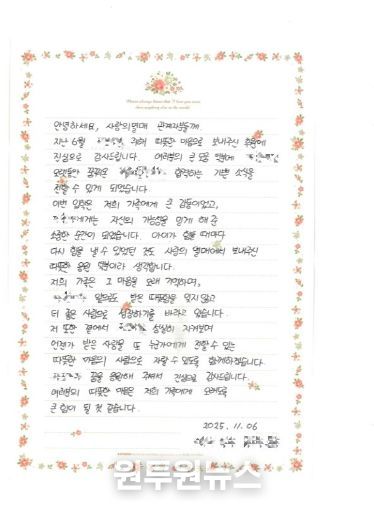 Please always know that I love you more than anything else in the world.
안녕하세요, 사랑의열매 관계자분들께.
지난 6월 위해 따뜻한 마음으로 보내주신 후원에
진심으로 감사드립니다. 여러분의 큰 도움 덕분에
오랫동안 꿈꿔온 합격하는 기쁜 소식을
전할 수 있게 되었습니다.
이번 입학은 저희 가족에게 큰 감동이었고,
에게는 자신의 가능성을 믿게 해 준
소중한 순간이 되었습니다. 아이가 힘들 때마다
다시 힘을 낼 수 있었던 것도 사랑의 열매에서 보내주신
따뜻한 응원 덕분이라 생각합니다.
저희 가족은 그 마음을 오래 기억하며,
앞으로도 받은 따뜻함을 잊지 않고
더 좋은 사람으로 성장하기를 바라고 있습니다.
저 또한 곁에서 성실히 지켜보며
언젠가 받은 사랑을 또 누군가에게 전할 수 있는
따뜻한 마음의 사람으로 자랄 수 있도록 함께하겠습니다.
꿈을 응원해 주셔서 진심으로 감사드립니다.
여러분의 따뜻한 마음은 저희 가족에게 오래도록
큰 힘이 될 것 같습니다.
2025. 11. 06
원투원뉴스